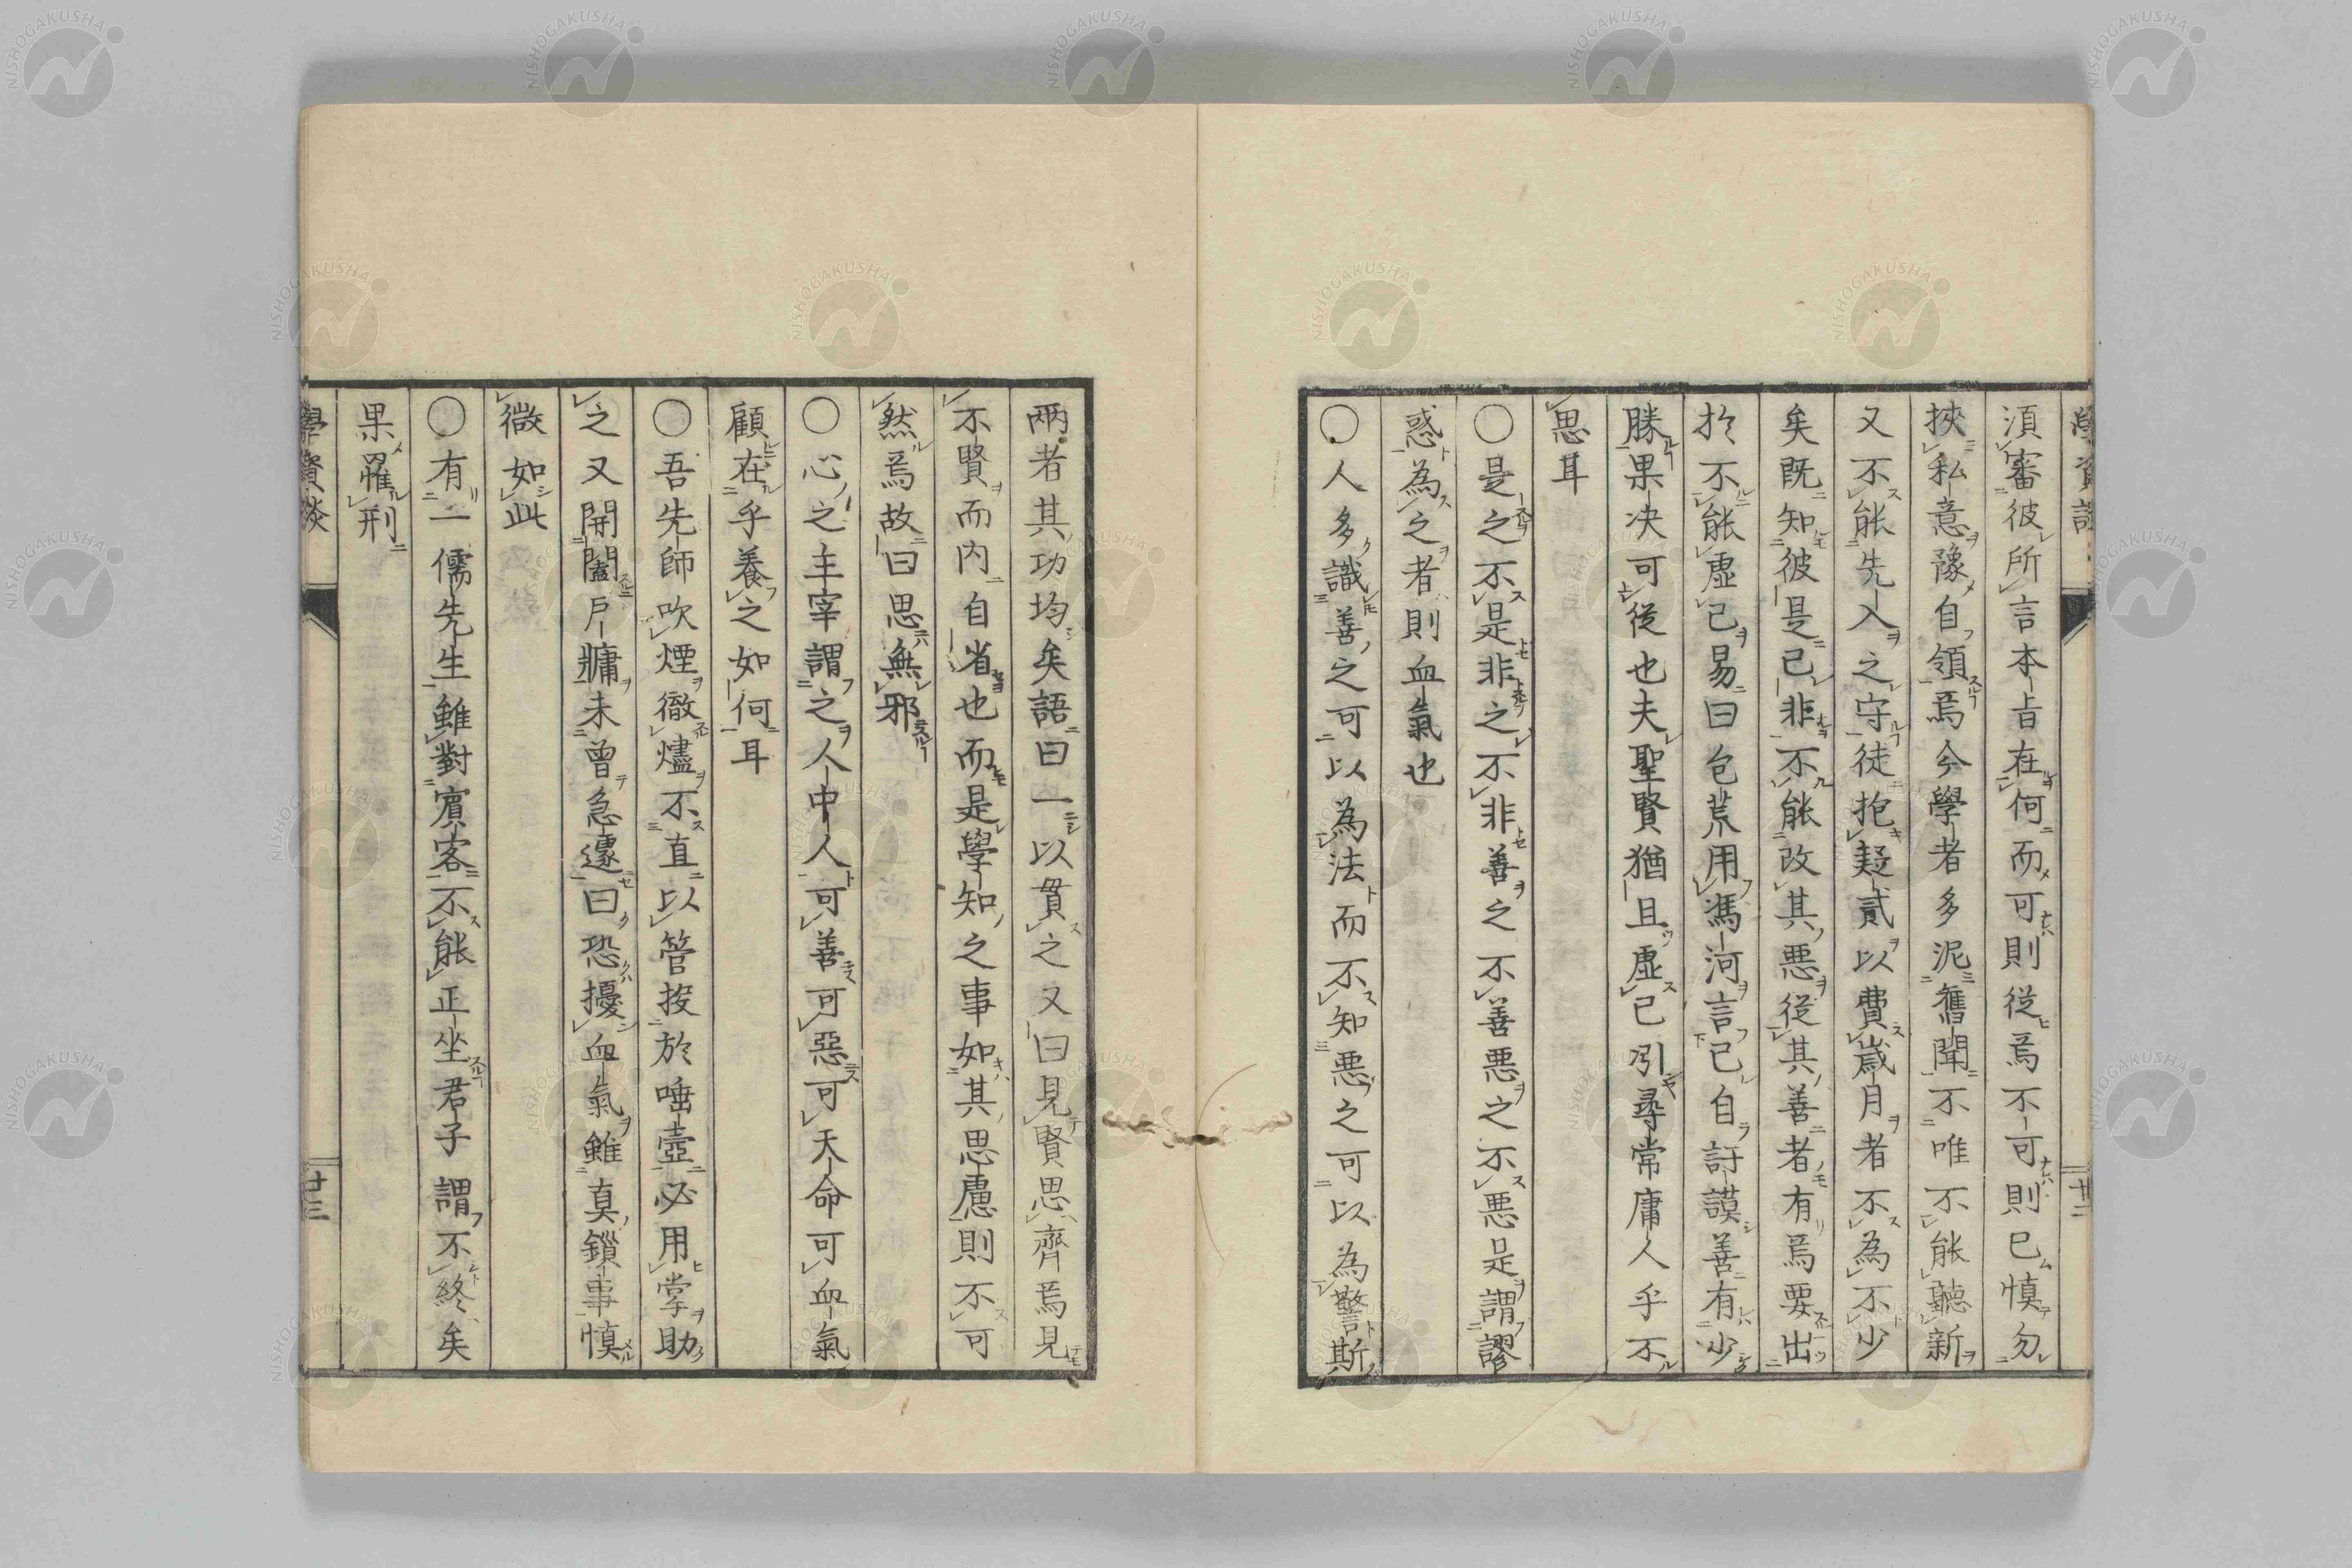 須審彼所言本旨在何而可則從焉不可則已慎勿
挾私意豫自領焉今學者多泥舊聞不唯不能聽新
又不能先入之守徒抱疑貳以費歲月者不為不少
矣既知彼是己非不能改其悪從其善者有焉要出
於不能虛己易曰包荒用馮河言己自訏謨善有少
勝果决可從也夫聖賢猶且虛己況尋常庸人乎不
思耳
〇是之不是非之不非善之不善悪之不悪是謂謬
惑為之者則血氣也
〇人多識善之可以為法而不知悪之可以為警斯
兩者其功均矣語曰一以貫之又曰見賢思齊焉見
不賢而内自省也而是學知之事如其思慮則不可
然焉故曰思無邪
〇心之主宰謂之人中人可善可惡可天命可血氣
顧在乎養之如何耳
〇吾先師吹煙徹燼不直以管按於唾壺必用掌助
之又開闔戶牖未曾急遽曰恐擾血氣雖真鎖事慎
微如此
〇有一儒先生雖對賓客不能正坐君子謂不終矣
果罹刑
學資談
廿三
廿二
NISHOGAKUSHA